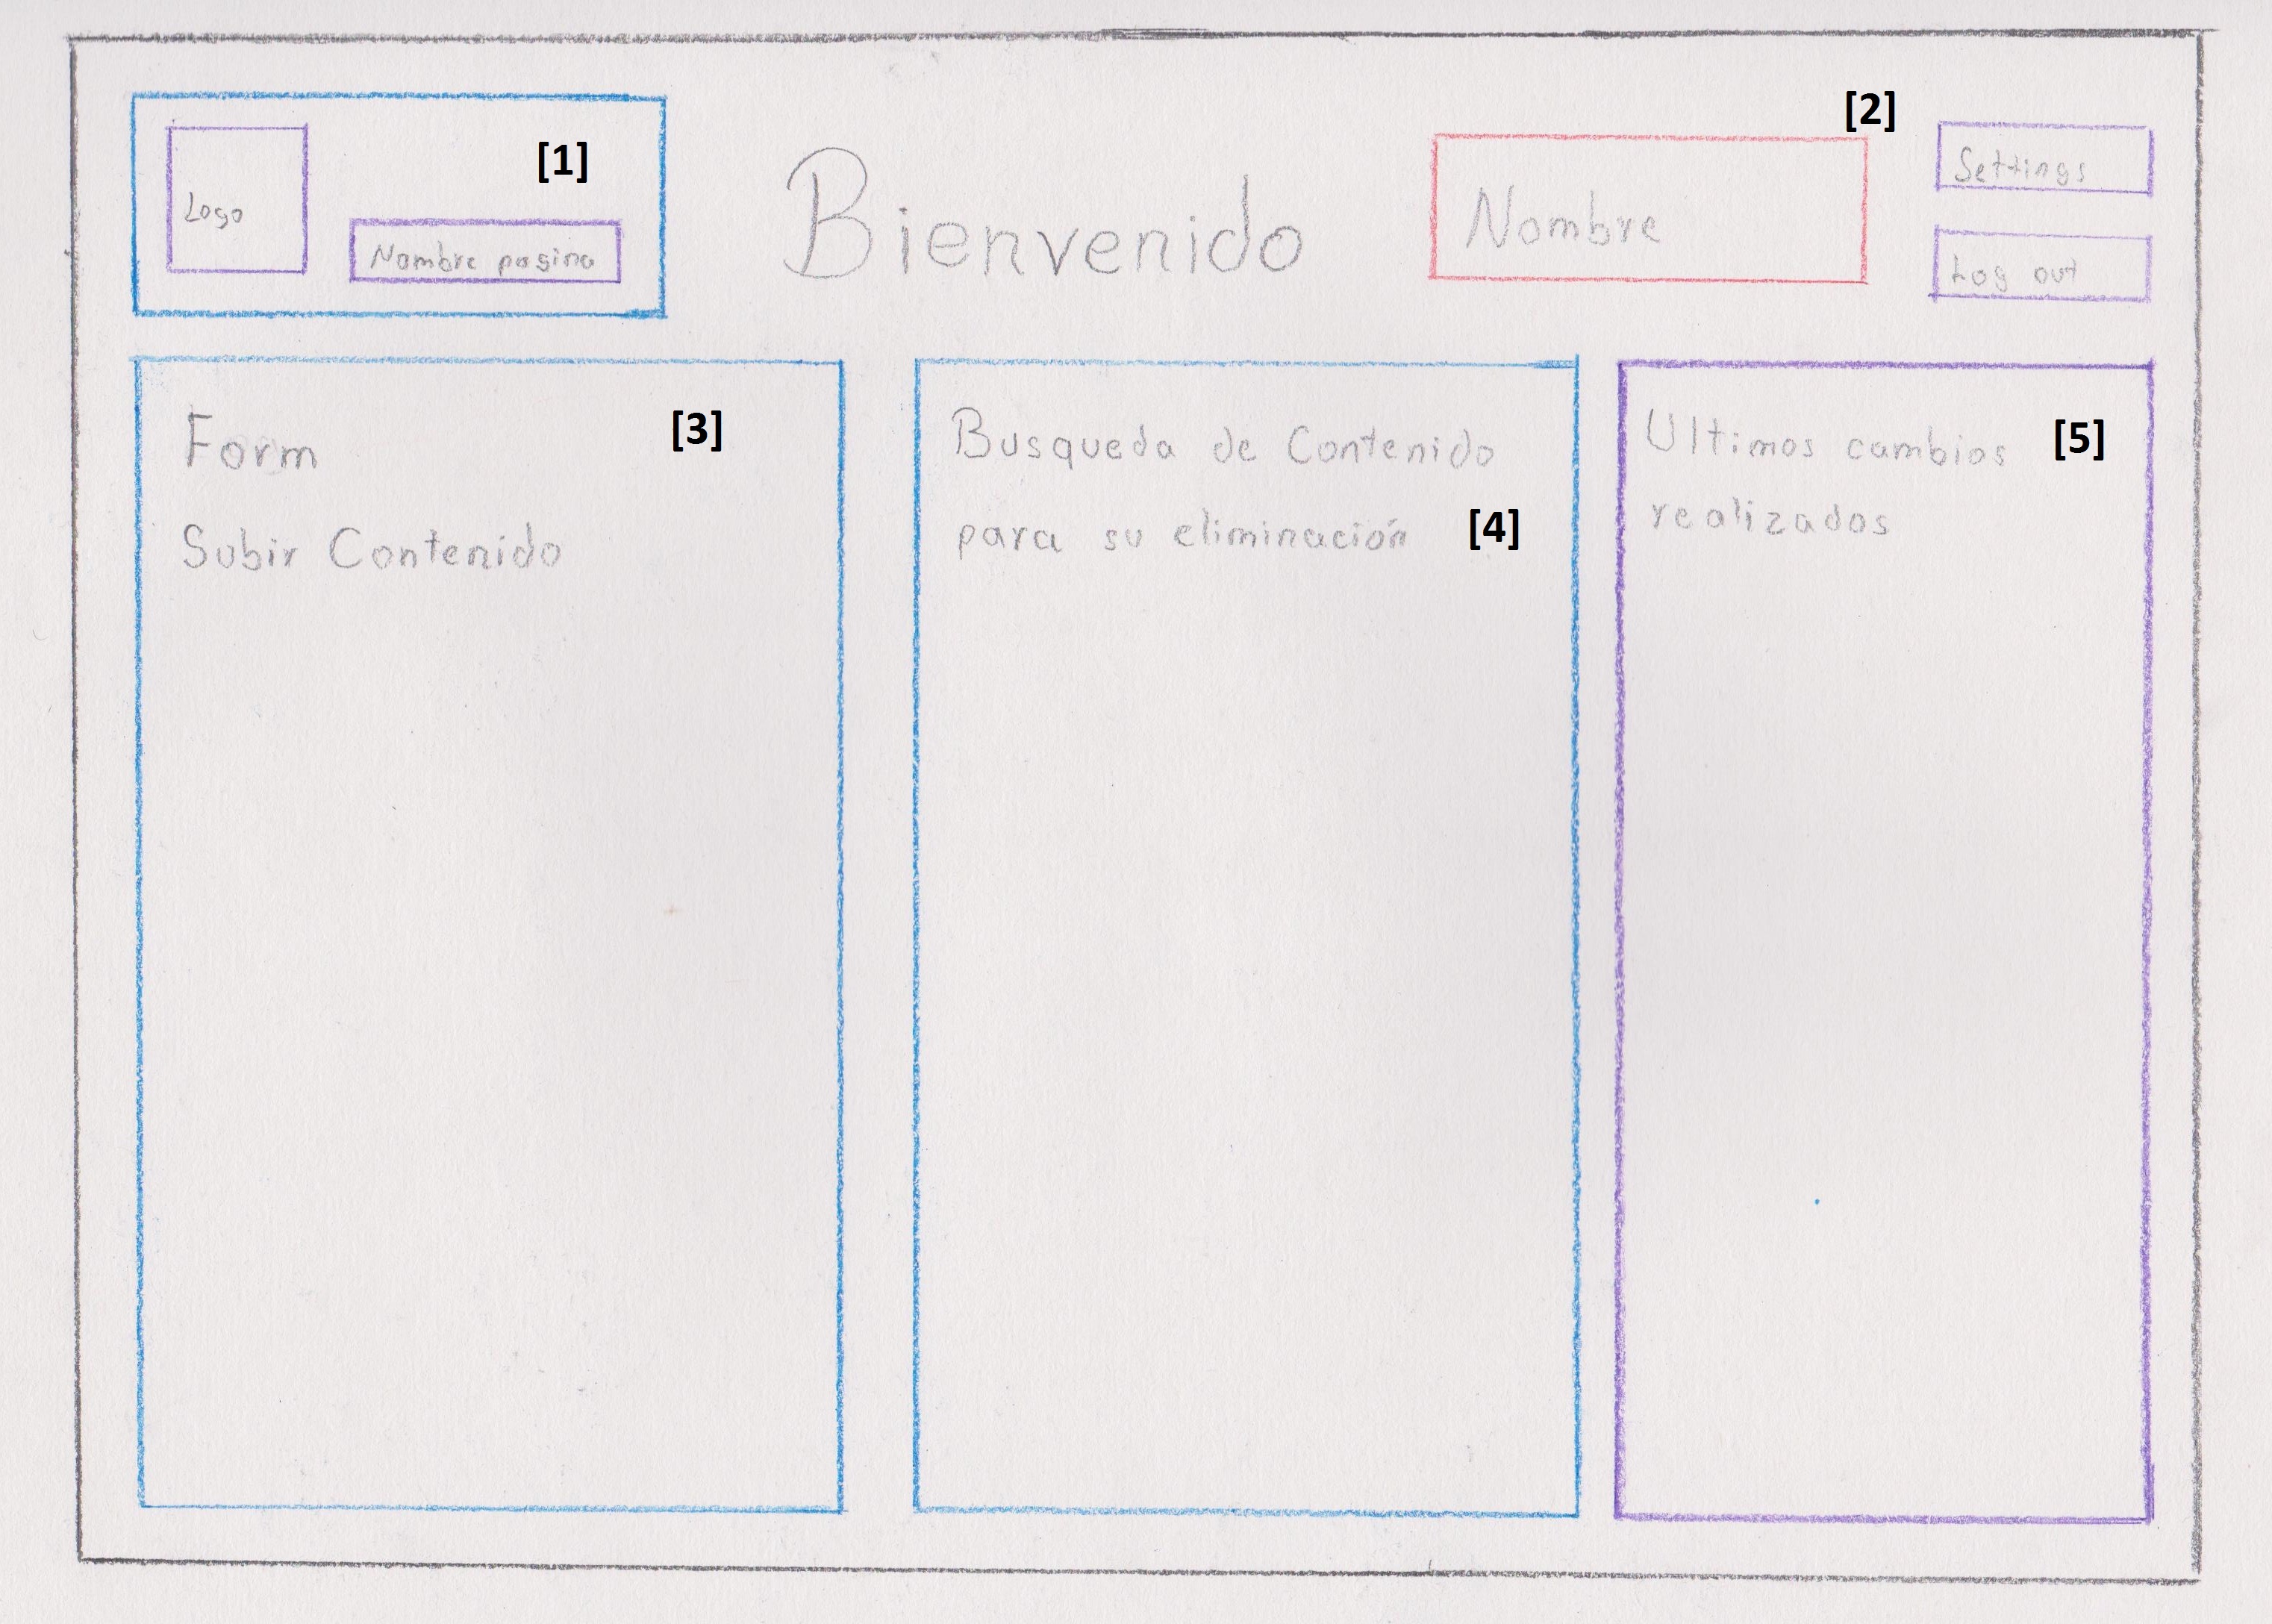 [1]
Logo
Nombre pagina
Bienvenido
[2]
Nombre
Settings
Log out
[3]
Form
Subir Contenido
Busqueda de Contenido
para su eliminación [4]
Ultimos cambios [5]
realizados